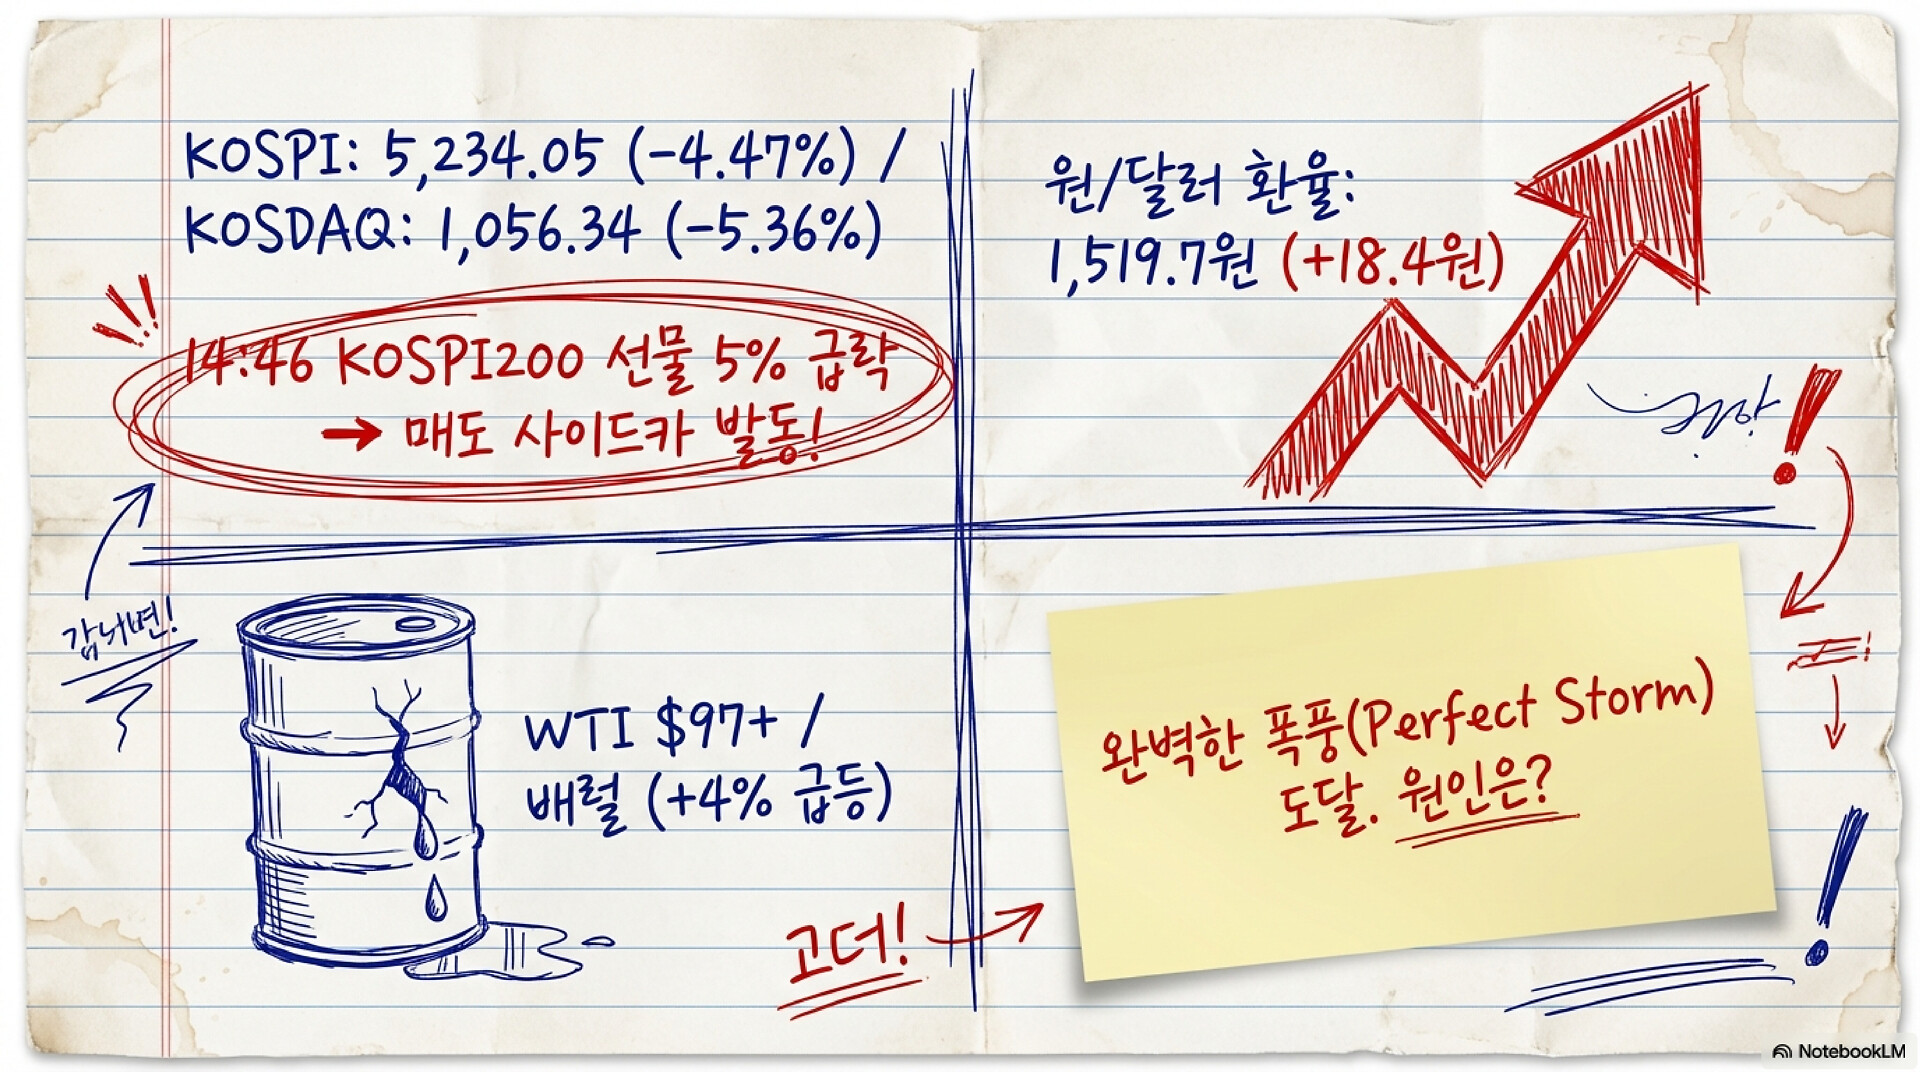 KOSPI: 5,234.05 (-4.47%) /
KOSDAQ: 1,056.34 (-5.36%)
14:46 KOSPI200 선물 5% 급락
→ 매도 사이드카 발동!
원/달러 환율:
1,519.7원 (+18.4원)
WTI $97+ /
배럴 (+4% 급등)
고더!
완벽한 폭풍(Perfect Storm)
도달. 원인은?
NotebookLM